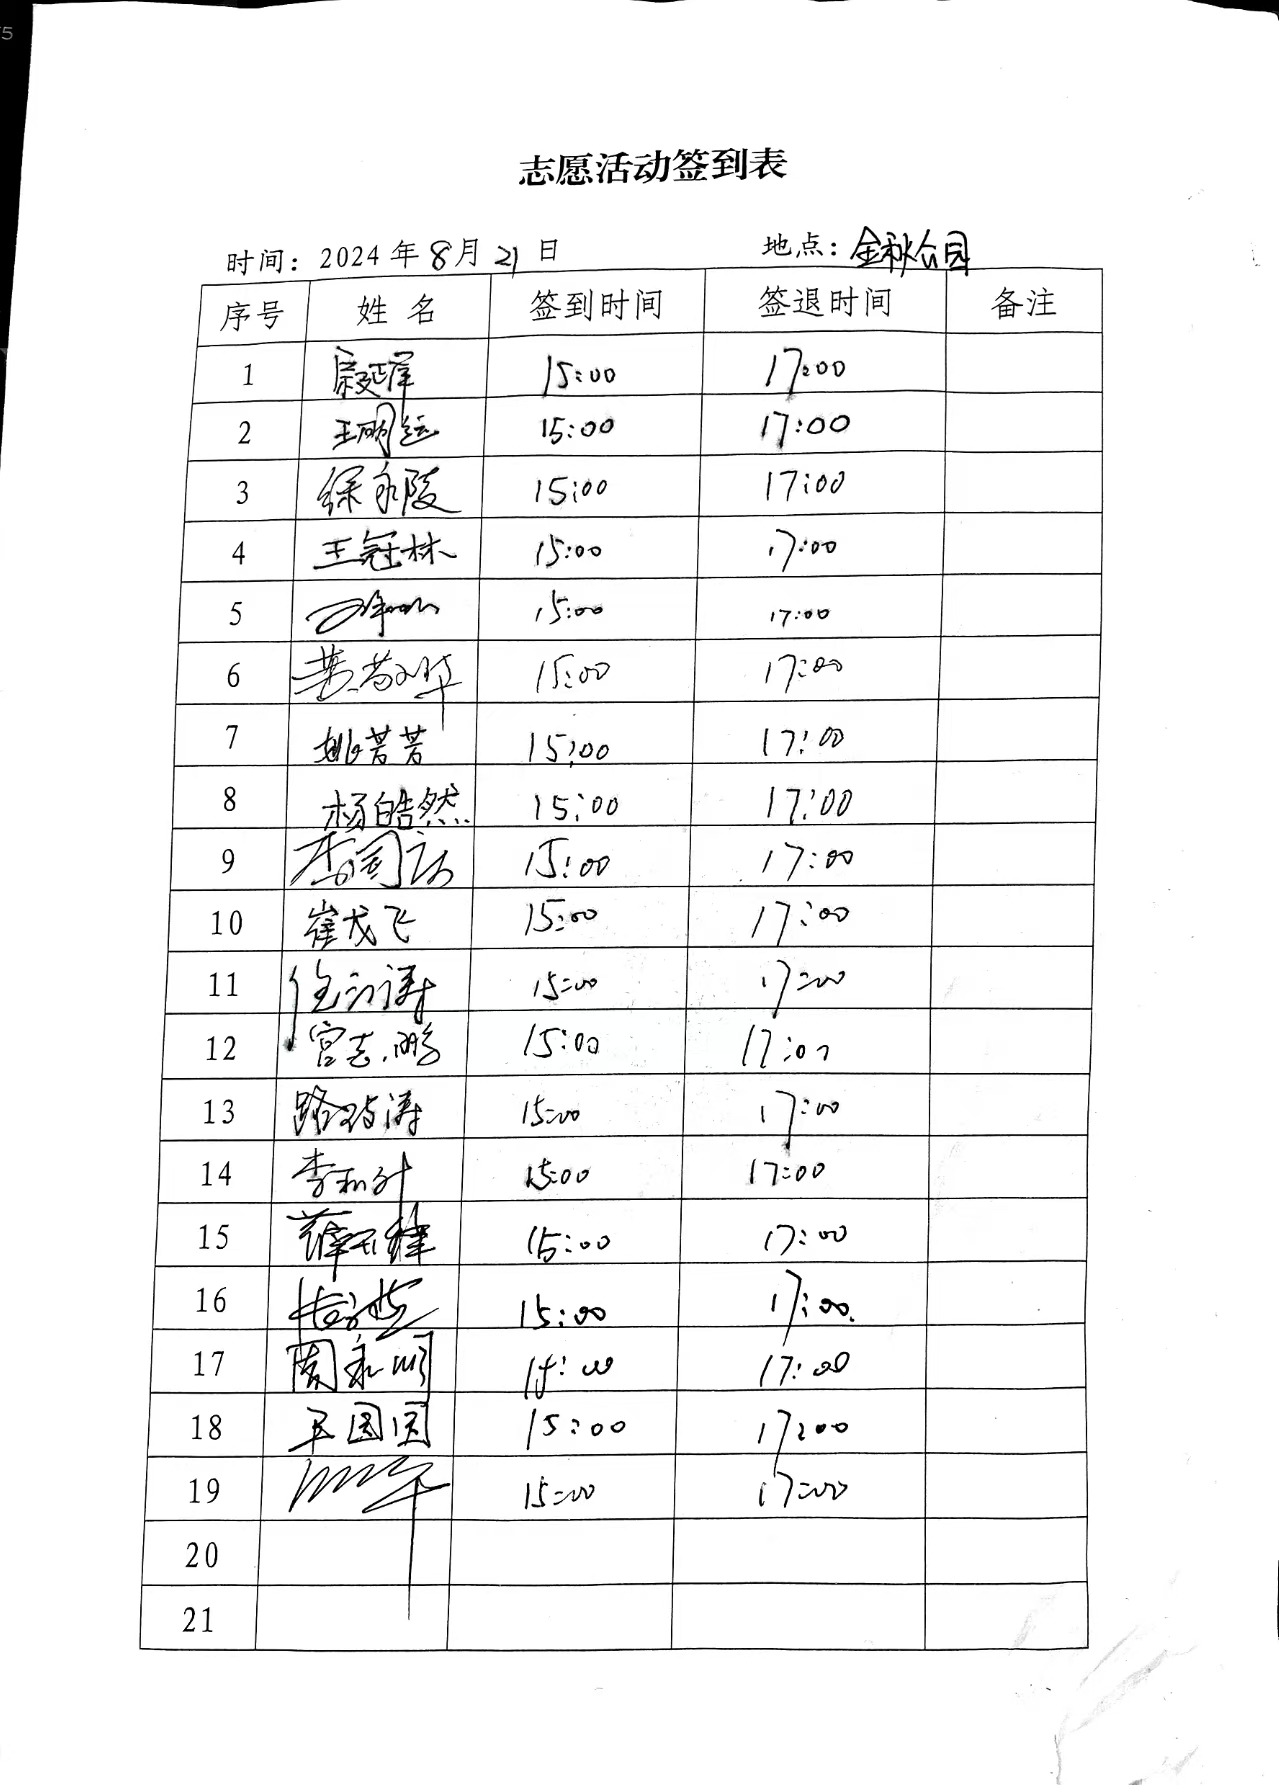 志愿活动签到表
时间：2024年8月21日 地点：金秋公园
序号 姓名 签到时间 签退时间 备注
1 15:00 17:00
2 王明运 15:00 17:00
3 徐永陵 15:00 17:00
4 王冠林 15:00 17:00
5 15:00 17:00
6 15:00 17:00
7 姚若若 15:00 17:00
8 杨皓然 15:00 17:00
9 15:00 17:00
10 崔成飞 15:00 17:00
11 15:00 17:00
12 宫志鹏 15:00 17:00
13 15:00 17:00
14 15:00 17:00
15 15:00 17:00
16 15:00 17:00
17 周永顺 15:00 17:00
18 王园园 15:00 17:00
19 15:00 17:00
20
21